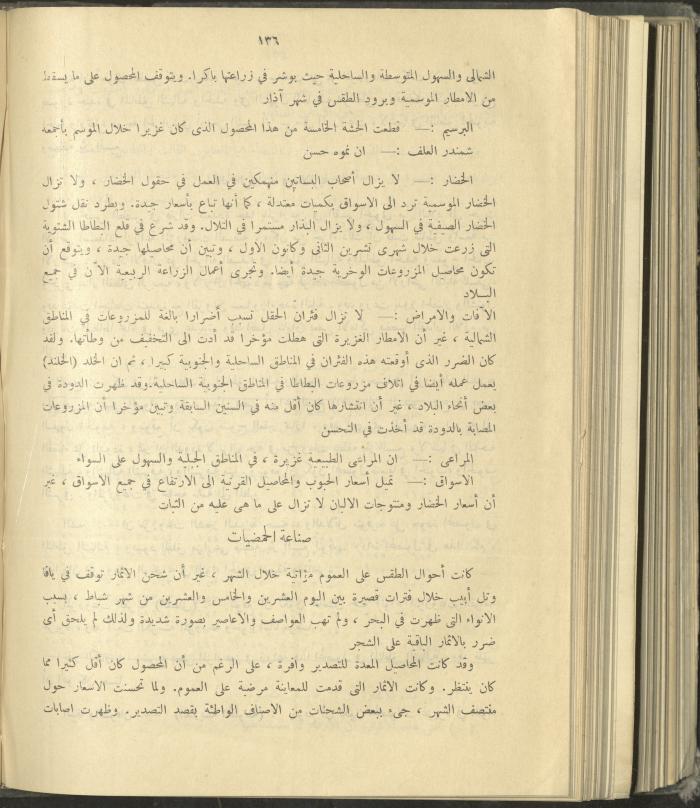 ١٣٦
الشمالى والسهول المتوسطة والساحلية حيث بوشر في زراعتها باكرا. ويتوقف المحصول على ما يسقط
من الامطار الموسمية وبرود الطقس في شهر آذار
البرسيم :— قطعت الحشة الخامسة من هذا المحصول الذى كان غزيرا خلال الموسم بأجمعه
شمندر العلف :— ان نموه حسن
الخضار :— لا يزال أصحاب البساتين منهمكين في العمل في حقول الخضار ، ولا تزال
الخضار الموسمية ترد الى الاسواق بكميات معتدلة ، كما أنها تباع بأسعار جيدة. ويطرد نقل شتول
الخضار الصيفية في السهول ، ولا يزال البذار مستمرا في التلال. وقد شرع في قلع البطاطا الشتوية
التى زرعت خلال شهرى تشرين الثانى وكانون الاول ، وتبين أن محاصيلها جيدة ، ويتوقع أن
تكون محاصيل المزروعات الوخرية جيدة أيضا. وتجرى أعمال الزراعة الربيعية الآن في جميع
البلاد
الآفات والامراض :— لا تزال فئران الحقل تسبب أضرارا بالغة للمزروعات في المناطق
الشمالية ، غير أن الامطار الغزيرة التى هطلت مؤخرا قد أدت الى التخفيف من وطأتها. ولقد
كان الضرر الذى أوقعته هذه الفئران في المناطق الساحلية والجنوبية كبيرا ، ثم ان الخلد (الخلند)
يعمل عمله أيضا في اتلاف مزروعات البطاطا في المناطق الجنوبية الساحلية.وقد ظهرت الدودة في
بعض أنحاء البلاد ، غير أن انتشارها كان أقل منه في السنين السابقة وتبين مؤخرا أن المزروعات
المصابة بالدودة قد أخذت في التحسن
المراعى :— ان المراعى الطبيعية غزيرة ، في المناطق الجبلية والسهول على السواء
الاسواق :— تميل أسعار الحبوب والمحاصيل القرنية الى الارتفاع في جميع الاسواق ، غير
أن أسعار الخضار ومنتوجات الالبان لا تزال على ما هى عليه من الثبات
صناعة الحمضيات
كانت أحوال الطقس على العموم مؤاتية خلال الشهر ، غير أن شحن الاثمار توقف في يافا
وتل أبيب خلال فترات قصيرة بين اليوم العشرين والخامس والعشرين من شهر شباط ، بسبب
الانواء التى ظهرت في البحر ، ولم تهب العواصف والاعاصير بصورة شديدة ولذلك لم يلحق أى
ضرر بالاثمار الباقية على الشجر
وقد كانت المحاصيل المعدة للتصدير وافرة ، على الرغم من أن المحصول كان أقل كثيرا مما
كان ينتظر. وكانت الاثمار التى قدمت للمعاينة مرضية على العموم. ولما تحسنت الاسعار حول
منتصف الشهر ، جىء ببعض الشحنات من الاصناف الواطئة بقصد التصدير. وظهرت اصابات